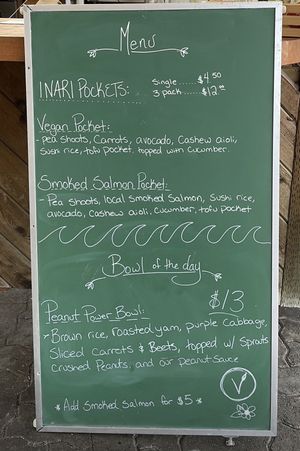 Menu
INARI POCKETS: Single ...... $4.50
3 pack ..... $12.00
Vegan Pocket:
- pea shoots, Carrots, avocado, Cashew aioli,
Sushi rice, tofu pocket, topped with Cucumber.
Smoked Salmon Pocket:
- Pea shoots, local smoked Salmon, Sushi rice,
avocado, Cashew aioli, Cucumber, tofu pocket
Bowl of the day
$13
Peanut Power Bowl:
- Brown rice, roasted yam, purple Cabbage,
Sliced Carrots & Beets, topped w/ Sprouts
Crushed Peanuts, and our peanut Sauce
V
* Add Smoked Salmon for $5 *